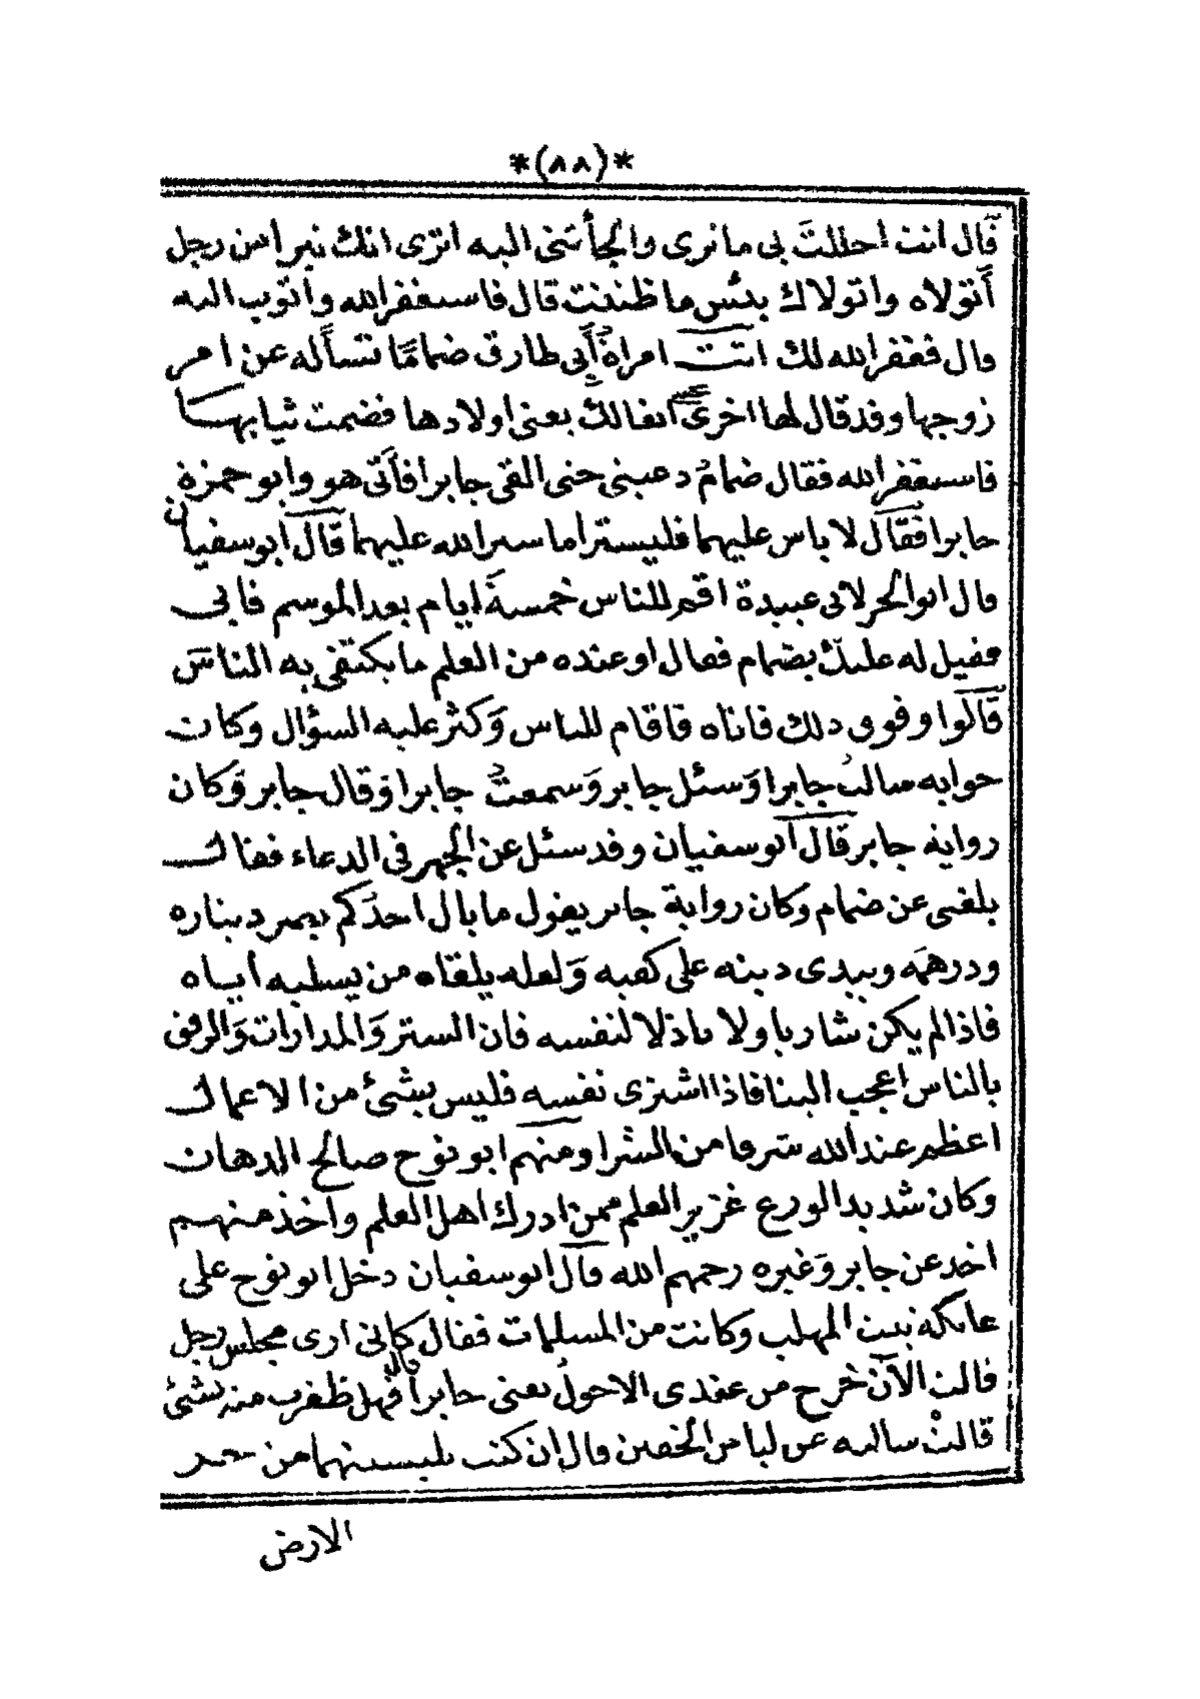 *(٨٨)*
قال انت احللت بى ما نرى والجأتنى اليه اترى انك تبرا من رجل
أتولاه واتولاك بئس ما ظننت قال فاستغفر الله واتوب اليه
قال فغفر الله لك اتت امراة أبى طارق ضمامًا تسأله عن امر
زوجها وقد قال لها اخرى عنى انفالك يعنى اولادها فضمت ثيابها
فاستغفر الله فقال ضمام دعينى حتى القى جابرا فأتى هو وابو حمزة
جابرا فقال لا باس عليهما فليسترا ما ستر الله عليهما قال ابو سفيان
قال ابو الحر لابى عبيدة اقم للناس خمسة ايام بعد الموسم فابى
فقيل له عليك بضمام فقال او عنده من العلم ما يكتفى به الناس
قالوا وفوق ذلك فاتاه فاقام للناس وكثر عليه السؤال وكان
جوابه سالت جابرا وسئل جابر وسمعت جابرا وقال جابر وكان
رواية جابر قال ابو سفيان وقد سئل عن الجهر فى الدعاء فقال
بلغنى عن ضمام وكان رواية جابر يقول ما بال احدكم يصر ديناره
ودرهمه ويبدى دينه على كفيه ولعله يلقاه من يسلبه اياه
فاذا لم يكن شاريا ولا باذلا لنفسه فان الستر والمدارات والرفق
بالناس اعجب الينا فاذا اشترى نفسه فليس بشئ من الاعمال
اعظم عند الله شرفا من الشرا ومنهم ابو نوح صالح الدهان
وكان شديد الورع غزير العلم ممن ادرك اهل العلم وأخذ منهم
اخذ عن جابر وغيره رحمهم الله قال ابو سفيان دخل ابو نوح على
عاتكة بنت المهلب وكانت من المسلمات فقال كانى ارى مجلس رجل
قالت الآن خرج من عندى الاحول يعنى جابرا قال فهل ظفرت منه بشئ
قالت سالته عن لباس الخفين قال ان كنت تلبسينهما من حر
الارض